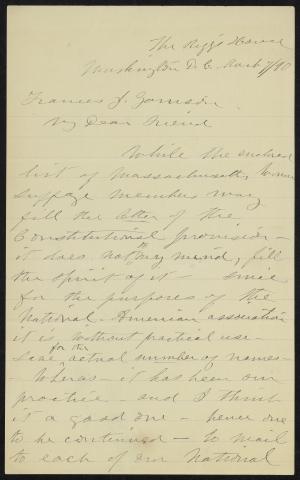 The Riggs House
Washington D. C. March 7/90
Francis J. Garrison
My Dear Friend
While the enclosed
list of Massachusetts Woman
suffrage members may
fill the letter of the
Constitutional provision -
it does not to my mind, fill
the spirit of it - since
for the purposes of the
National - American association
it is without practical use -
save for the actual number of names -
Whereas - it has been our
practice - and I think
it a good one -
to be continued - to mail
to each of our National